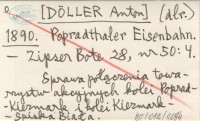 [DÖLLER Anton] (dłr.)
1890. Popradthaler Eisenbahn.
– Zipser Bote 28, nr 50: 4.
Sprawa połączenia towa-
rzystw akcyjnych kolei Poprad-
-Kiezmark i kolei Kiezmark-
-Spiska Biała.